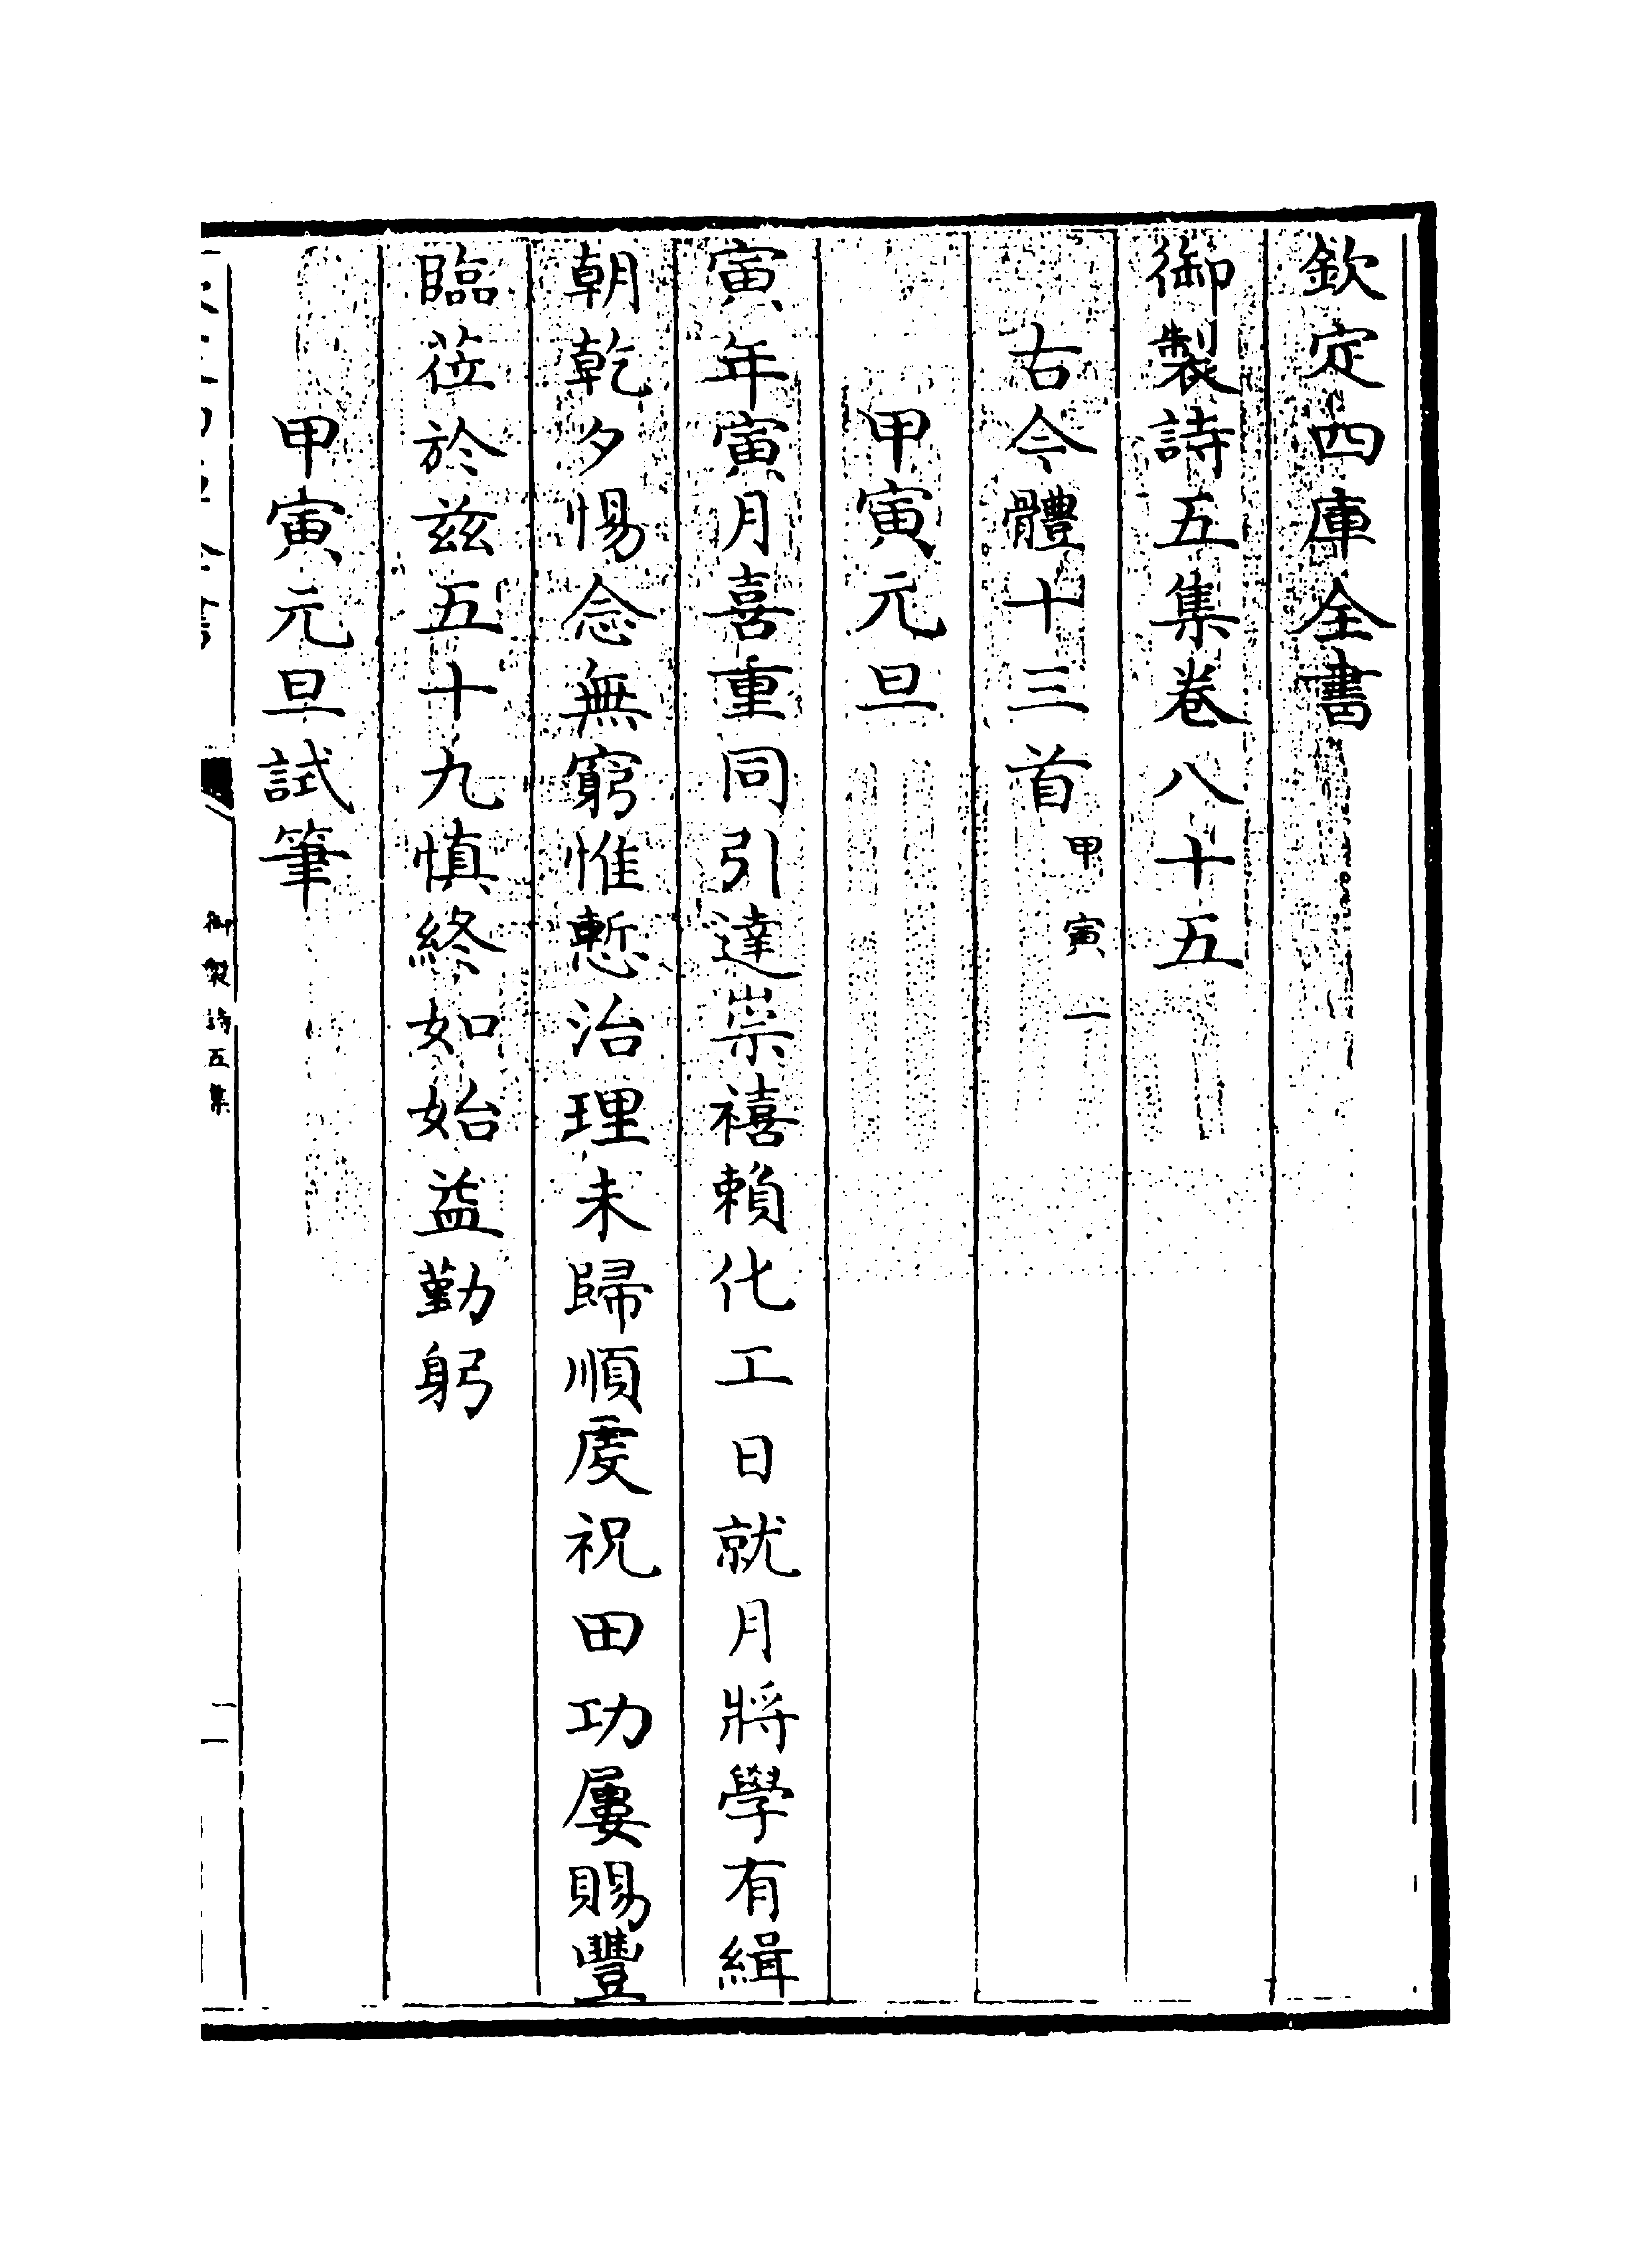 欽定四庫全書
御製詩五集卷八十五
古今體十三首甲寅一
甲寅元旦
寅年寅月喜重同引達崇禧賴化工日就月將學有緝
朝乾夕惕念無窮惟慙治理未歸順䖍祝田功屢賜豐
臨莅於兹五十九慎終如始益勤躬
甲寅元旦試筆
御製詩五集